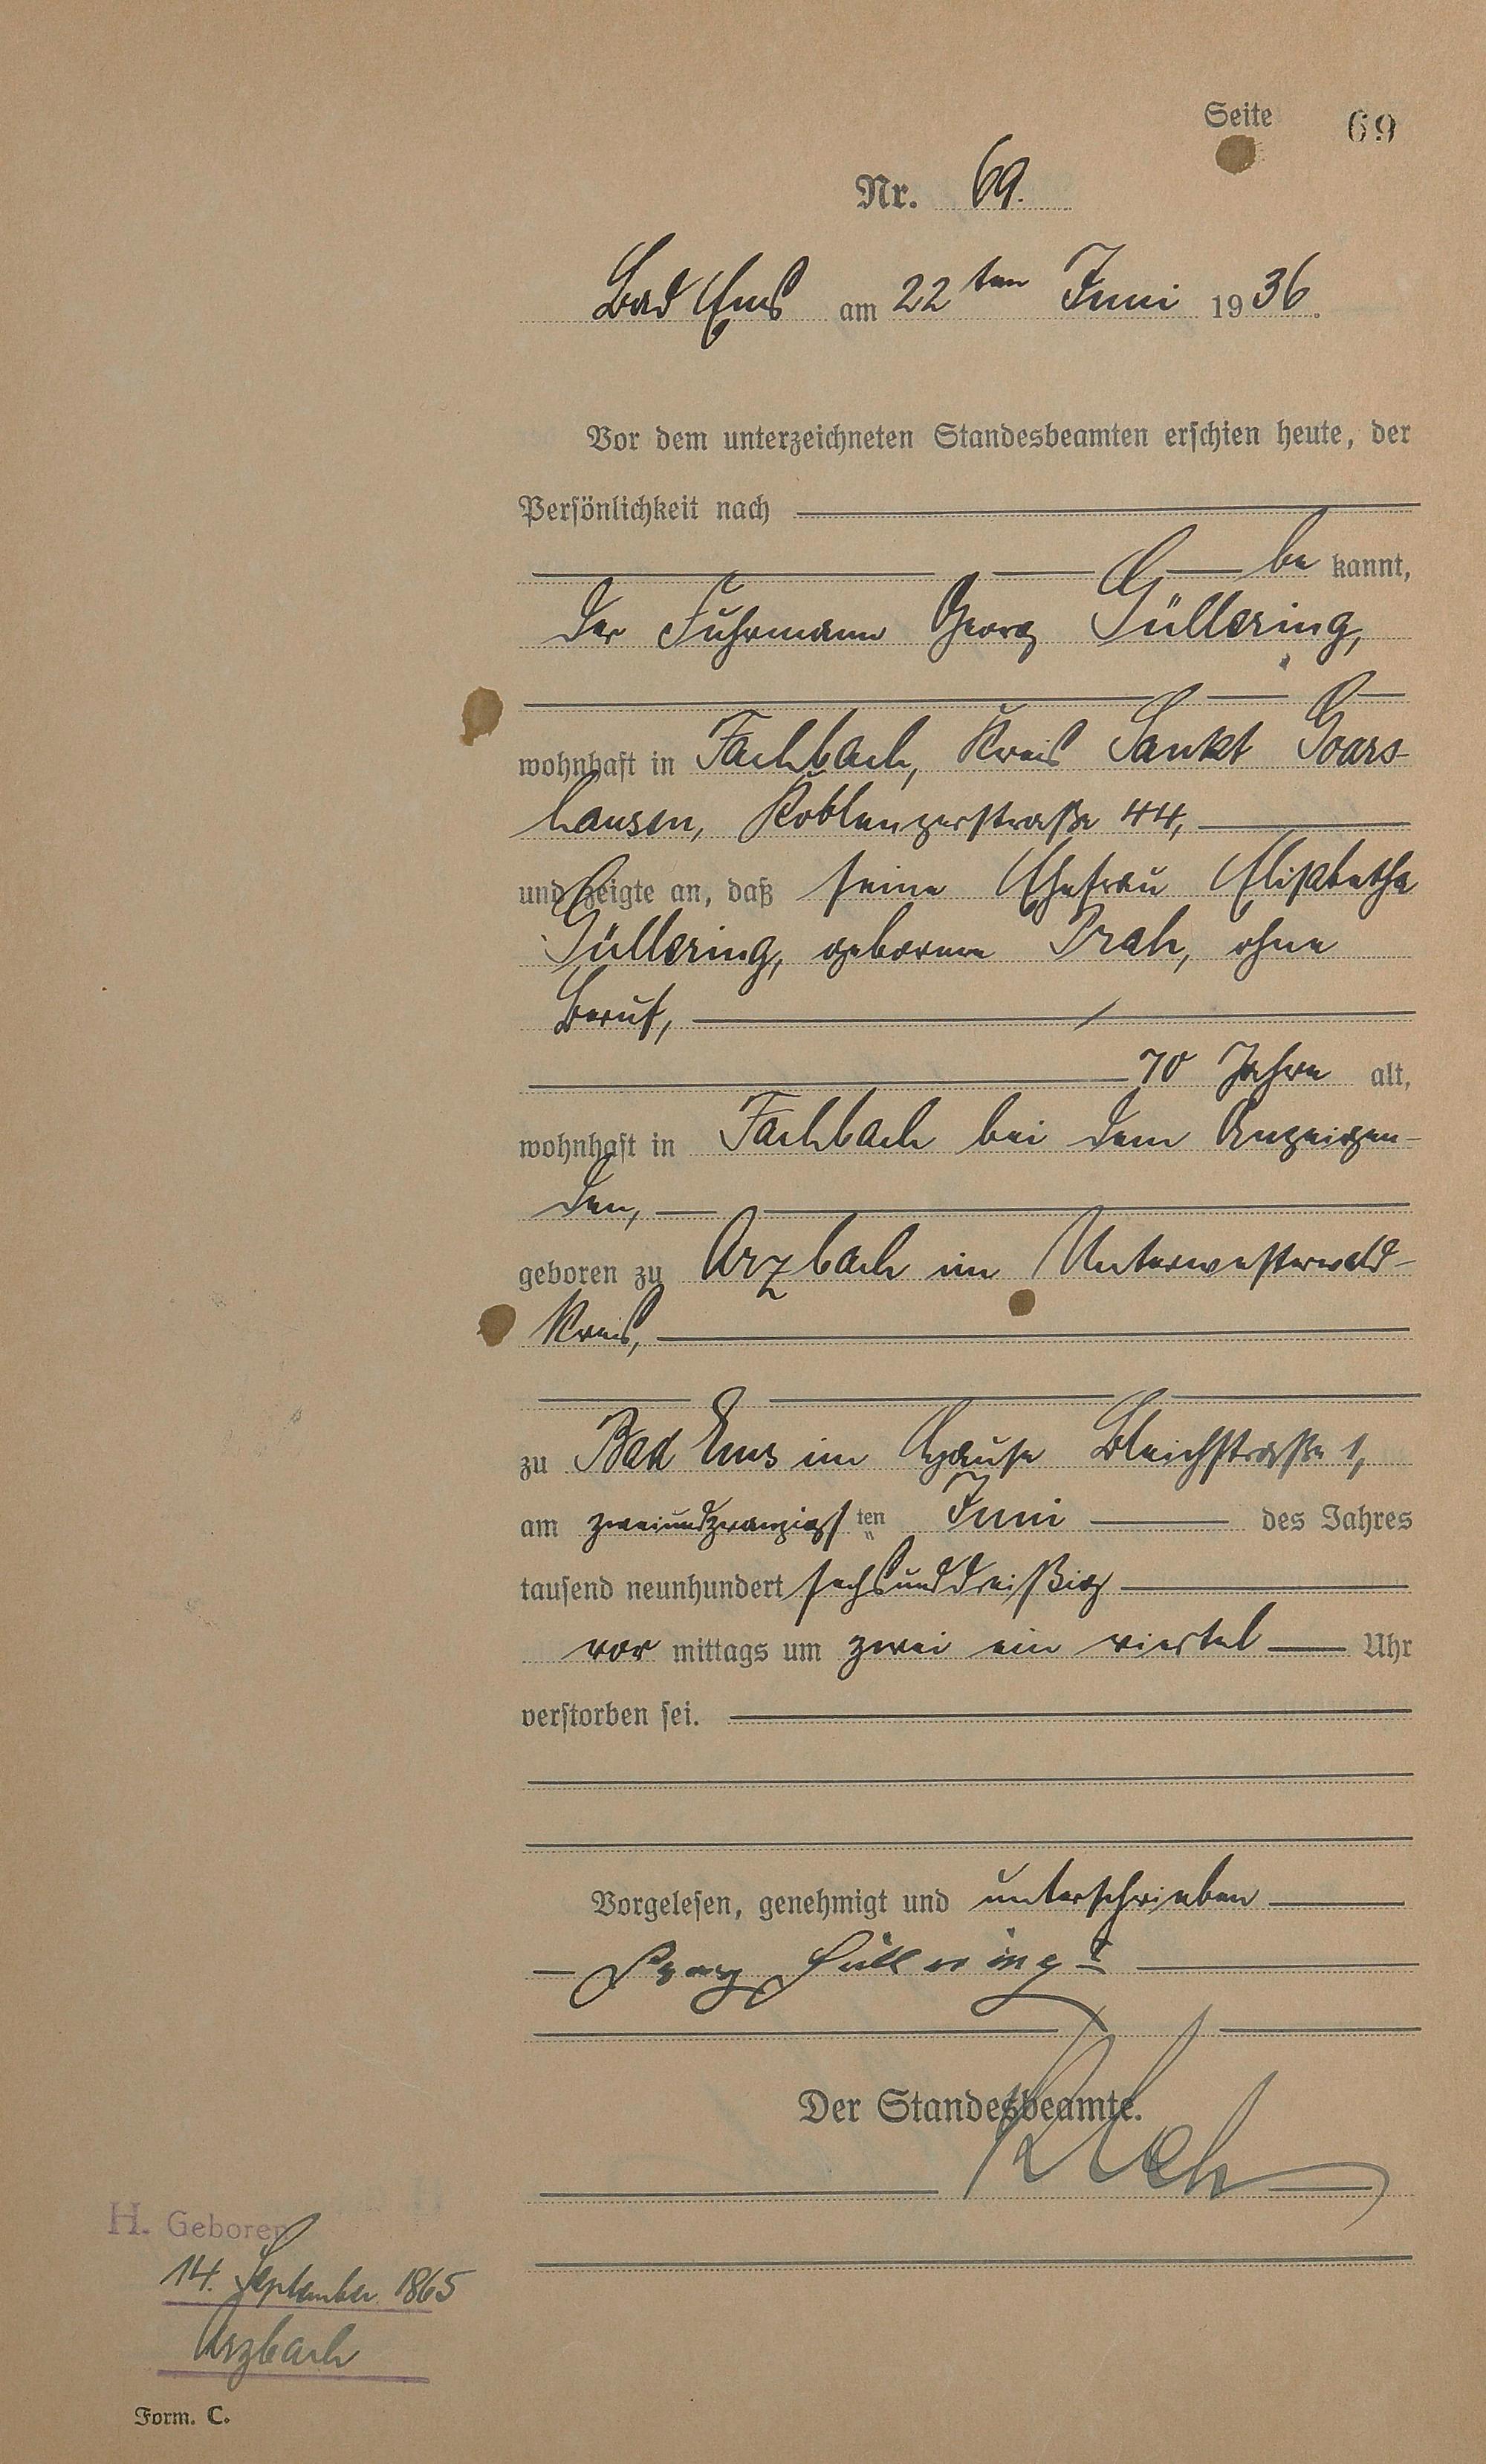 Seite 69
Nr. 69.
Bad Ems am 22ten Juni 1936.
Vor dem unterzeichneten Standesbeamten erschien heute, der
Persönlichkeit nach
be kannt,
der Fuhrmann Georg Güllering,
wohnhaft in Fachbach, Kreis Sankt Goars-
hausen, Koblenzerstraße 44,
und zeigte an, daß seine Ehefrau Elisabetha
Güllering, geborene Prah, ohne
Beruf,
70 Jahre alt,
wohnhaft in Fachbach bei dem Anzeigen-
den,
geboren zu Arzbach im Unterwesterwald-
kreis,
zu Bad Ems im Hause Bleichstraße 1,
am zweiundzwanzigsten Juni des Jahres
tausend neunhundert sechsunddreißig
vor mittags um zwei ein viertel Uhr
verstorben sei.
Vorgelesen, genehmigt und unterschrieben
Georg Güllering
Der Standesbeamte.
H. Geboren
14. September 1865
Arzbach
Form. C.